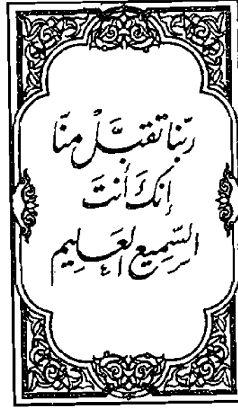 ربّنا تقبَّلْ منّا
إنكَ أنتَ
السّميع العليم